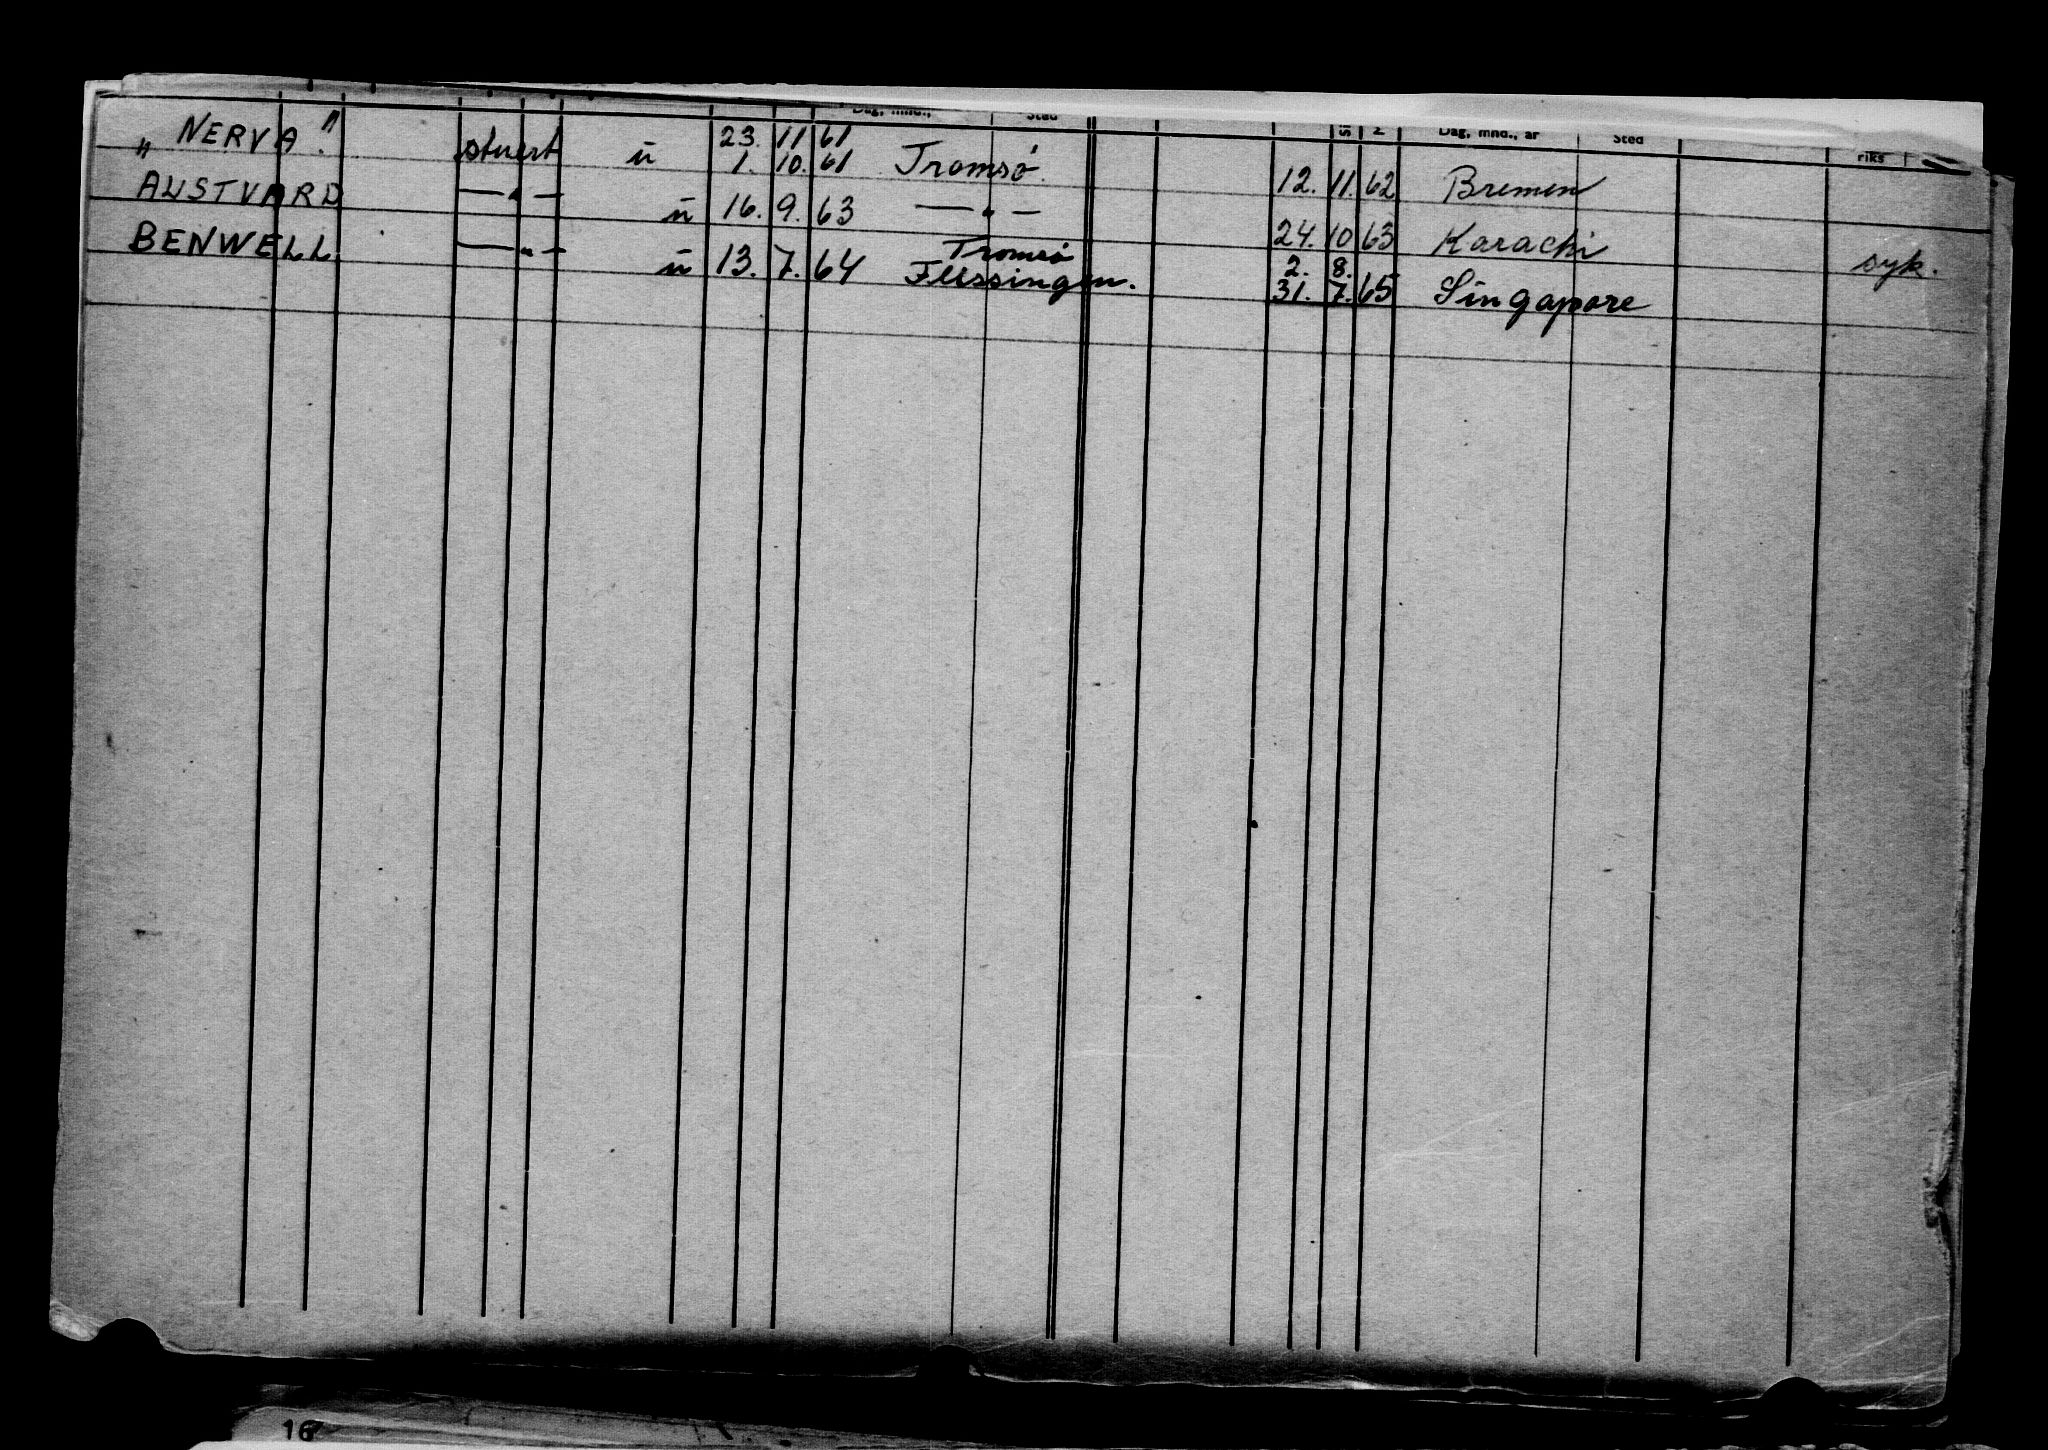 Dag, mnd., Sted Dag, mnd., år Sted riks
„NERVA" stuert ū 23. 11 61
1. 10. 61 Tromsø. 12. 11. 62 Bremen
AUSTVARD —„— ū 16. 9. 63 —„— 24. 10 63 Karachi syk.
BENWELL —„— ū 13. 7. 64 Tromsø 2. 8.
Flissingen. 31. 7. 65 Singapore
16